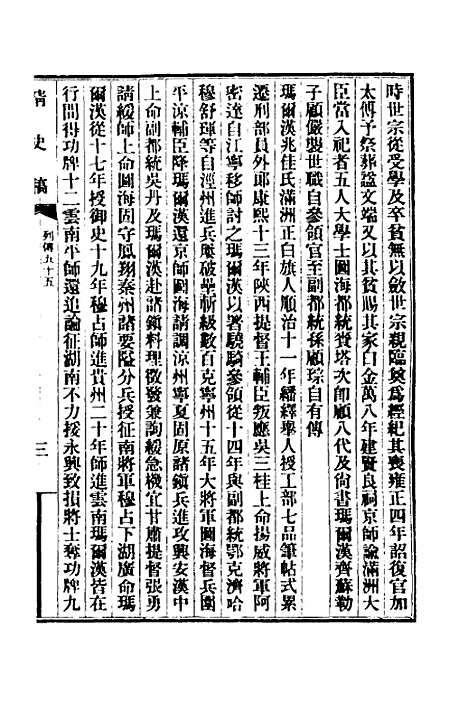 時世宗從受學及卒貧無以斂世宗親臨奠爲經紀其喪雍正四年詔復官加
太傅予祭葬諡文端又以其貧賜其家白金萬八年建賢良祠京師諭滿洲大
臣當入祀者五人大學士圖海都統賚塔次卽顧八代及尙書瑪爾漢齊蘇勒
子顧儼襲世職自參領官至副都統孫顧琮自有傳
瑪爾漢兆佳氏滿洲正白旗人順治十一年繙繹舉人授工部七品筆帖式累
遷刑部員外郎康熙十三年陝西提督王輔臣叛應吳三桂上命揚威將軍阿
密達自江寧移師討之瑪爾漢以署驍騎參領從十四年與副都統鄂克濟哈
穆舒琿等自涇州進兵屢破壘斬級數百克寧州十五年大將軍圖海督兵圍
平涼輔臣降瑪爾漢還京師圖海請調涼州寧夏固原諸鎭兵進攻興安漢中
上命副都統吳丹及瑪爾漢赴諸鎭料理徵發兼詢緩急機宜甘肅提督張勇
請緩師上命圖海固守鳳翔秦州諸要隘分兵授征南將軍穆占下湖廣命瑪
爾漢從十七年授御史十九年穆占師進貴州二十年師進雲南瑪爾漢皆在
行間得功牌十二雲南平師還追論征湖南不力援永興致損將士奪功牌九
清史稿
列傳五十五
三